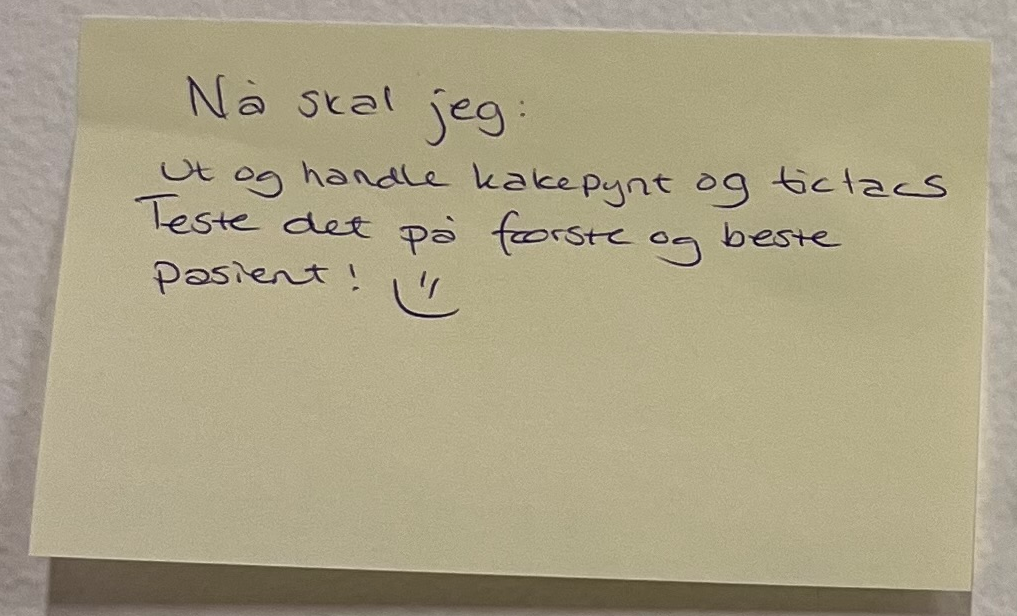 Nå skal jeg:
Ut og handle kakepynt og tictacs
Teste det på første og beste
pasient!